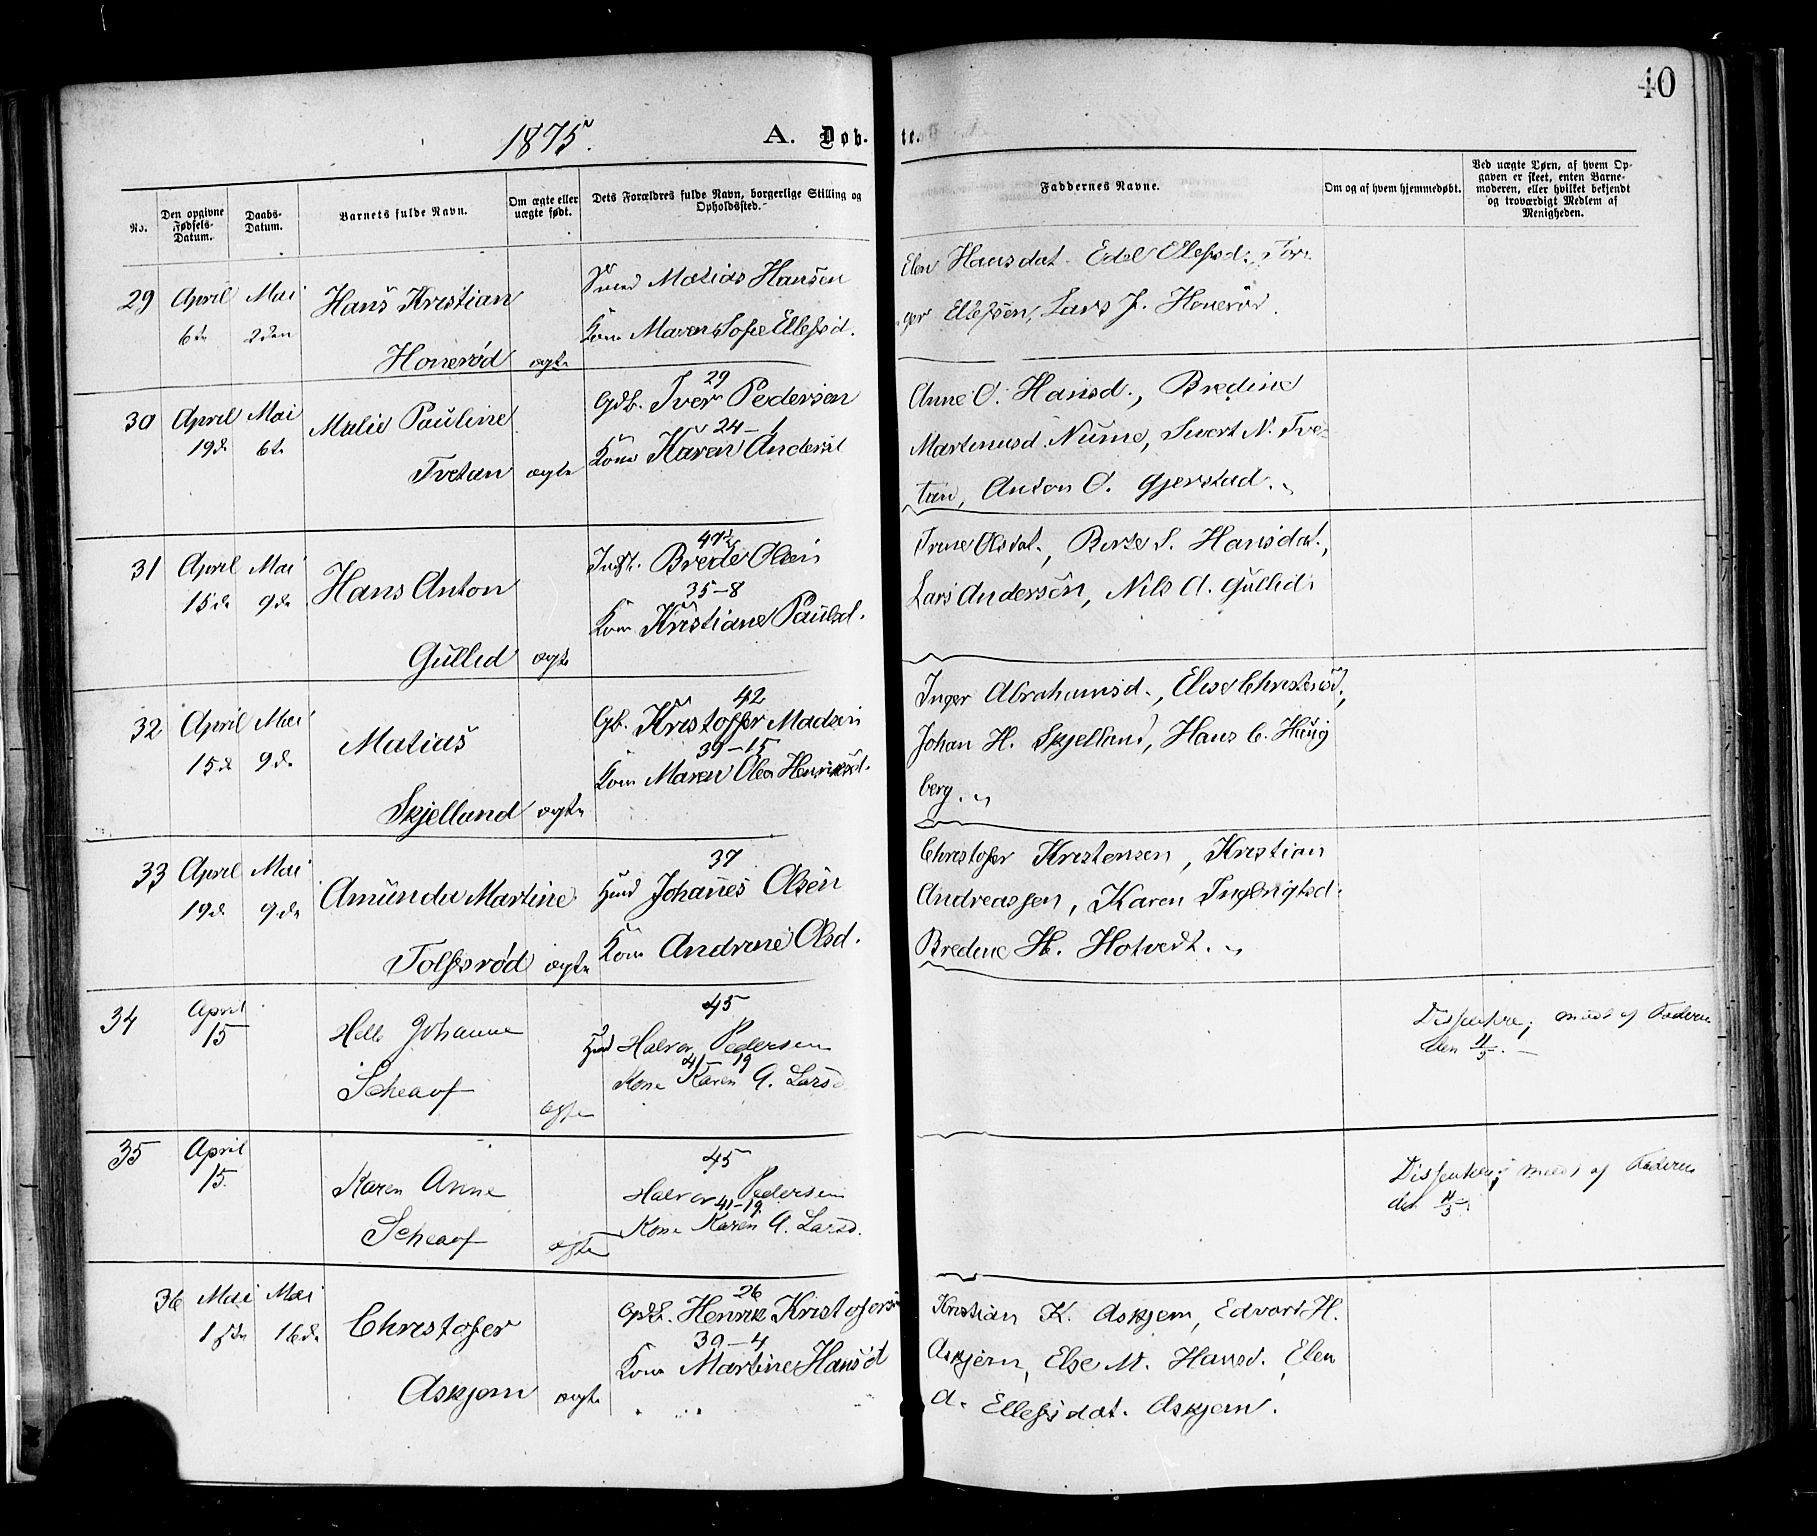 40
1875.
A. Døb-
te.
No.
Den opgivne
Fødsels-
Datum.
Daabs-
Datum.
Barnets fulde Navn.
Om ægte eller
uægte født.
Dets Forældres fulde Navn, borgerlige Stilling og
Opholdssted.
Faddernes Navne.
Om og af hvem hjemmedøbt.
Ved uægte Børn, af hvem Op-
gaven er skeet, enten Barne-
moderen, eller hvilket bekjendt
og troværdigt Medlem af
Menigheden.
29 April Mai Hans Kristian Matias Hansen
6te 2den Kone Maren Sofie Ellefsd.
Honerød ægte
Elen Hansdat. Edel Ellefsd. Tor-
ger Ellefsen, Lars J. Honerød.
29
30 April Mai Malie Pauline Gdb. Iver Pedersen
24-1
19d 6te Kone Karen Andersd
Tvetan ægte
Anne O. Hansd., Bredine
Martinusd. Nume, Sivert N. Tve-
tan, Anton O. Gjerstad.
47½
31 April Mai Hans Anton Inst. Brede Olsen
35-8
15de 9de Kone Kristiane Paulsd.
Gullid ægte
Trine Olsdat., Berte S. Hansdat.,
Lars Andersøn, Nils A. Gullid.
42
32 April Mai Matias Gb. Kristoffer Madsen
39-15
15de 9de Kone Maren Olea Henriksd.
Skjelland ægte
Inger Abrahamsd., Else Christensd.,
Johan H. Skjelland, Hans C. Haug
berg.
37
33 April Mai Amunda Martine Husd Johanes Olsen
19de 9de Kone Andrine Olsd.
Tolfsrød ægte
Christofer Kristensen, Kristian
Andreassen, Karen Ingbrigtsd.
Bredine H. Hotvedt.
45
34 April 15 Helle Johanne Husd Halvor Pedersen
41-19
Scheaof Kone Karen A. Larsd
ægte
Dissentere, meldt af Faderen
den 11/5.
45
35 April 15. Karen Anne Halvor Pedersen
41-19
Scheaof Kone Karen A. Larsd.
ægte
Dissentere, meldt af Faderen
den 11/5.
26
36 Mai Mai Christofer Gdb. Henrik Kristofersøn
30-4
1ste 16de Kone Martine Hansd
Askjem ægte
Kristian K. Askjem, Edvart H.
Askjem, Else M. Hansd. Elen
A. Ellefsdat. Askjem.